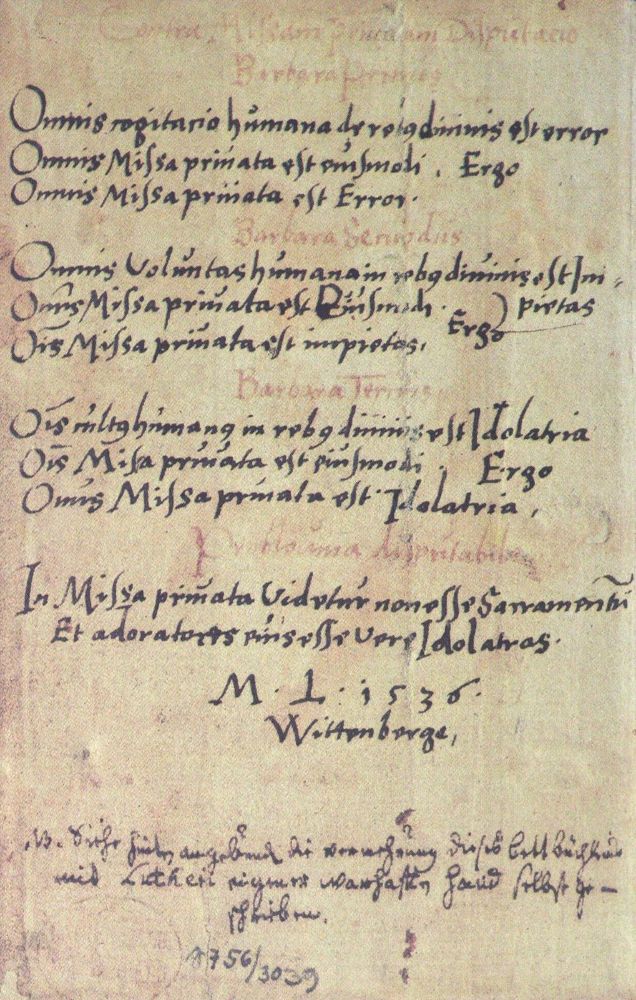 Contra Missam priuatam Disputacio
Barbara Primus
Omnis cogitacio humana de rebꝰ diuinis est error
Omnis Missa priuata est eiusmodi. Ergo
Omnis Missa priuata est Error.
Barbara Secundus
Omnis Voluntas humana in rebꝰ diuinis est Im-
Om̄s Missa priuata est Eiusmodi. ) pietas
Ergo
Oīs Missa priuata est impietas.
Barbara Tertius
Oīs cultꝰ humanꝰ in rebꝰ diuinis est Idolatria
Oīs Missa priuata est eiusmodi. Ergo
Omīs Missa priuata est Idolatria.
Problema disputabile
In Missa priuata Videtur non esse Sacramentū
Et adoratores eius esse vere Idolatras.
M. L. 1536.
Wittenberge,
NB. Siehe hinten die dieses bett büchleins
mit Lutheri eigner warhafften hand selbst ge-
schrieben.
1756/3039